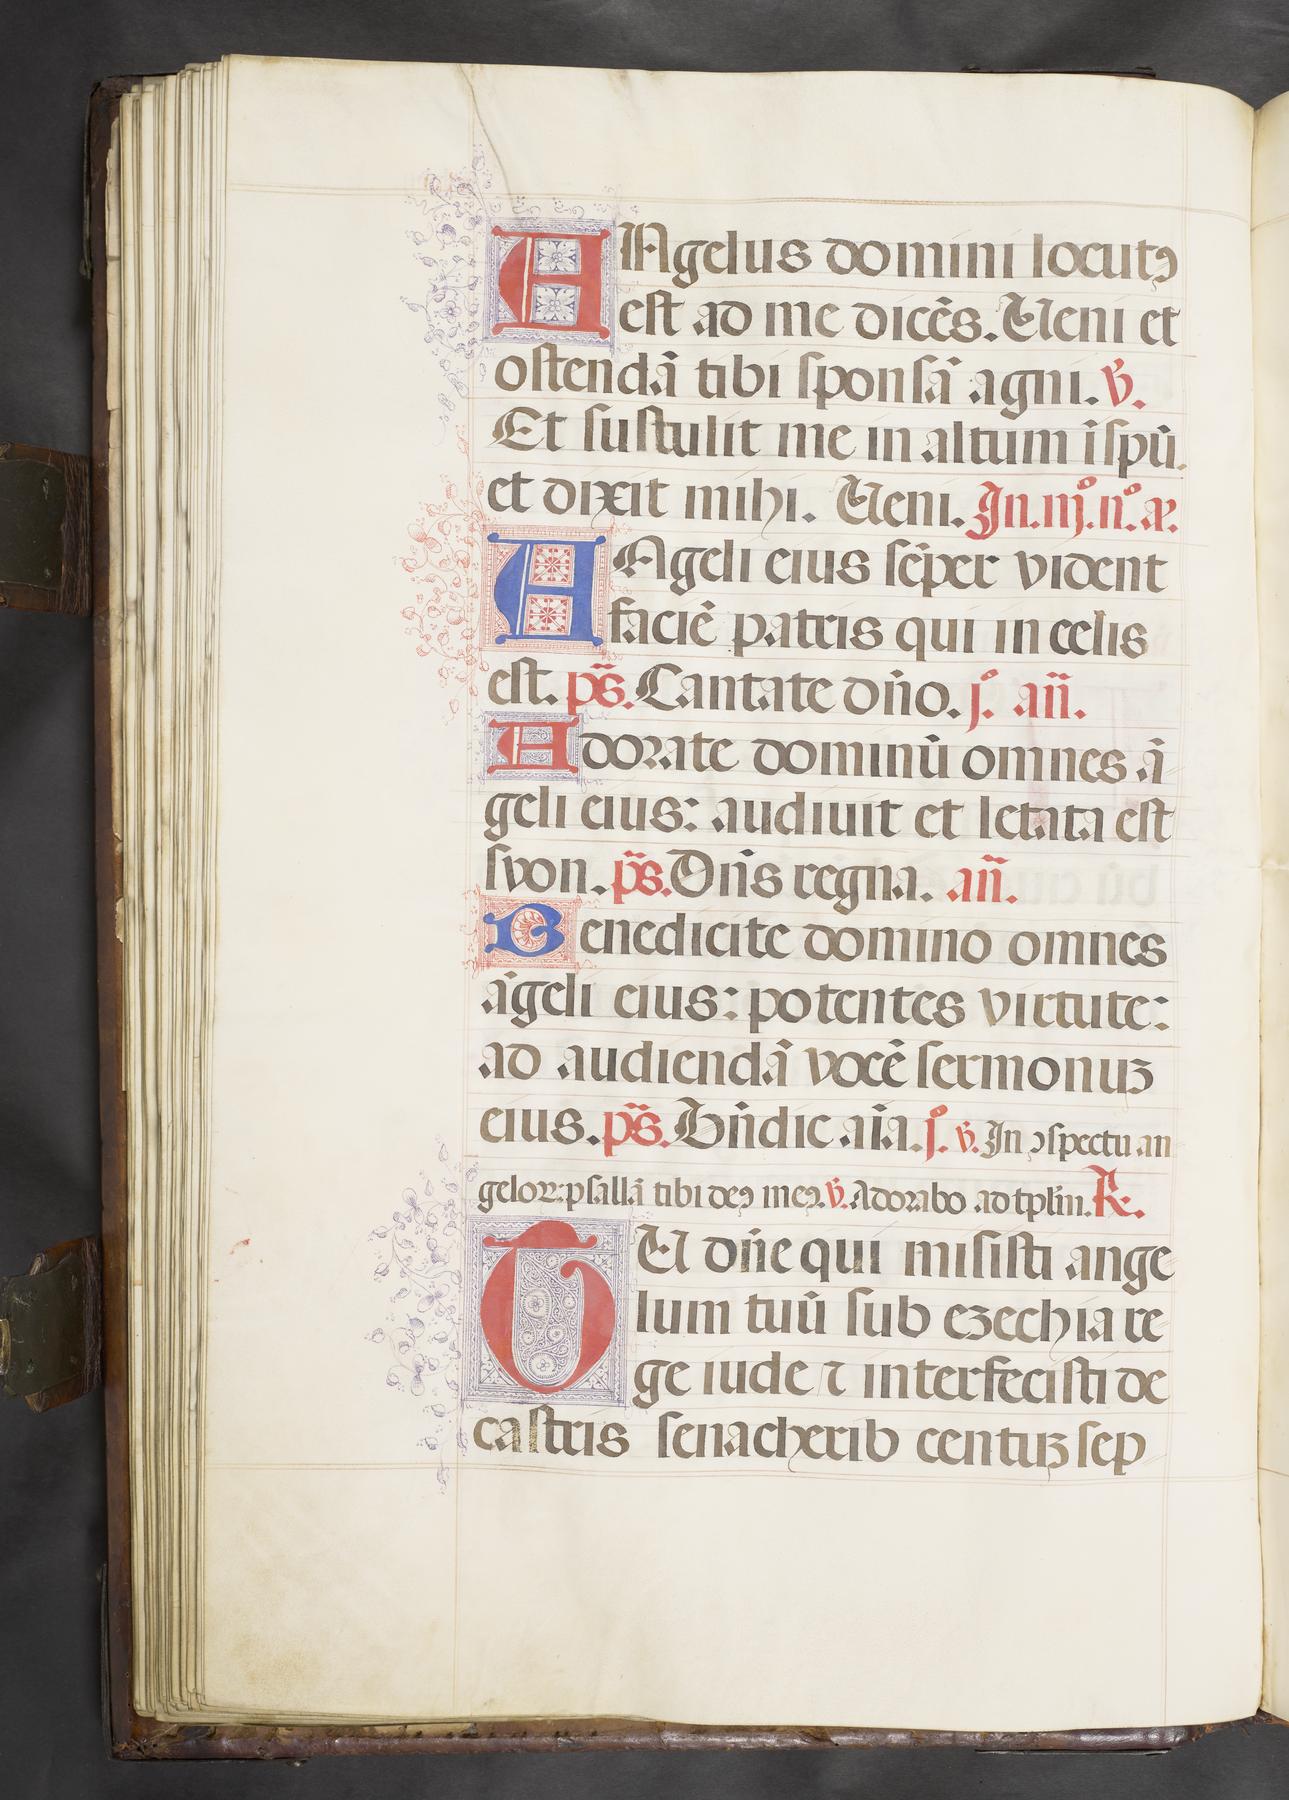 AÑgelus domini locutꝰ
est ad me dicẽs. Ueni et
ostendã tibi sponsã agni. ℣.
Et sustulit me in altum ĩ spũ.
et dixit mihi. Ueni. In. iijº. nº. a.
AÑgeli eius sẽper vident
faciẽ patris qui in celis
est. ps̃. Cantate dño. jº. añ.
Adorate dominũ omnes ã
geli eius: audiuit et letata est
syon. ps̃. Dñs regna. añ.
Benedicite domino omnes
ãgeli eius: potentes virtute:
ad audiendã vocẽ sermonuꝫ
eius. ps̃. Bñdic aĩa. jº. ℣. In ꝯspectu an
geloꝝ: psallã tibi deꝰ meꝰ. ℣. Adorabo ad tplm̃. ℟.
TU dñe qui misisti ange
lum tuũ sub ezechia re
ge iude ⁊ interfecisti de
castris senacherib centuꝫ sep